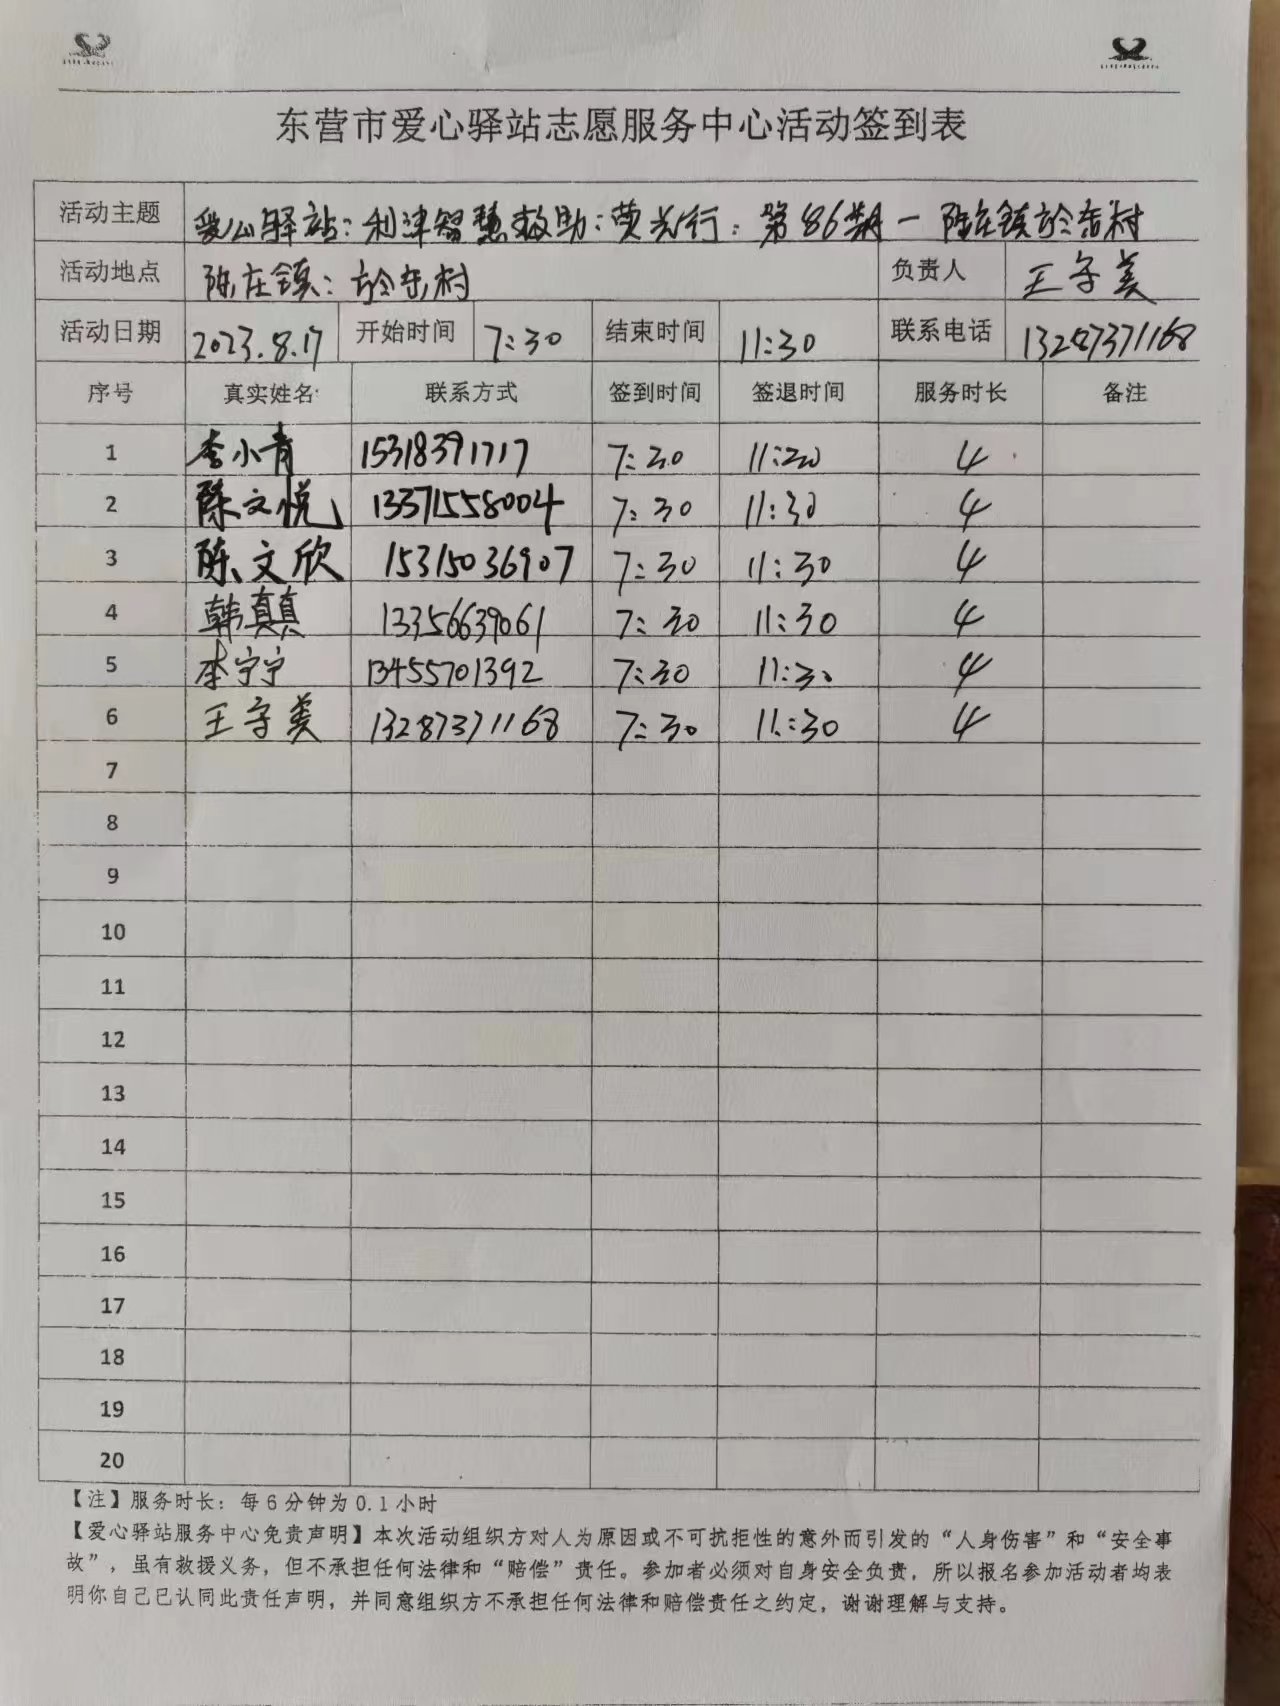 东营市爱心驿站志愿服务中心活动签到表
活动主题 爱心驿站：利津智慧救助：荧光行：第86期一陈庄镇於东村
活动地点 陈庄镇：於东村 负责人 王守美
活动日期 2023.8.17 开始时间 7:30 结束时间 11:30 联系电话 13287371168
序号 真实姓名 联系方式 签到时间 签退时间 服务时长 备注
1 李小青 15318391717 7:30 11:30 4
2 陈文悦 13371558004 7:30 11:30 4
3 陈文欣 15315036907 7:30 11:30 4
4 韩真真 13356639061 7:30 11:30 4
5 李宁宁 13455701392 7:30 11:30 4
6 王守美 13287371168 7:30 11:30 4
7
8
9
10
11
12
13
14
15
16
17
18
19
20
【注】服务时长：每6分钟为0.1小时
【爱心驿站服务中心免责声明】本次活动组织方对人为原因或不可抗拒性的意外而引发的“人身伤害”和“安全事
故”，虽有救援义务，但不承担任何法律和“赔偿”责任。参加者必须对自身安全负责，所以报名参加活动者均表
明你自己已认同此责任声明，并同意组织方不承担任何法律和赔偿责任之约定，谢谢理解与支持。